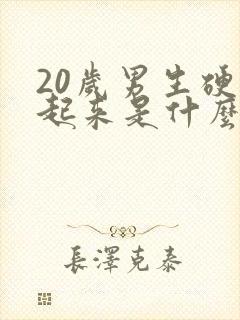 20歲男生硬
起来是什麼
長澤克泰